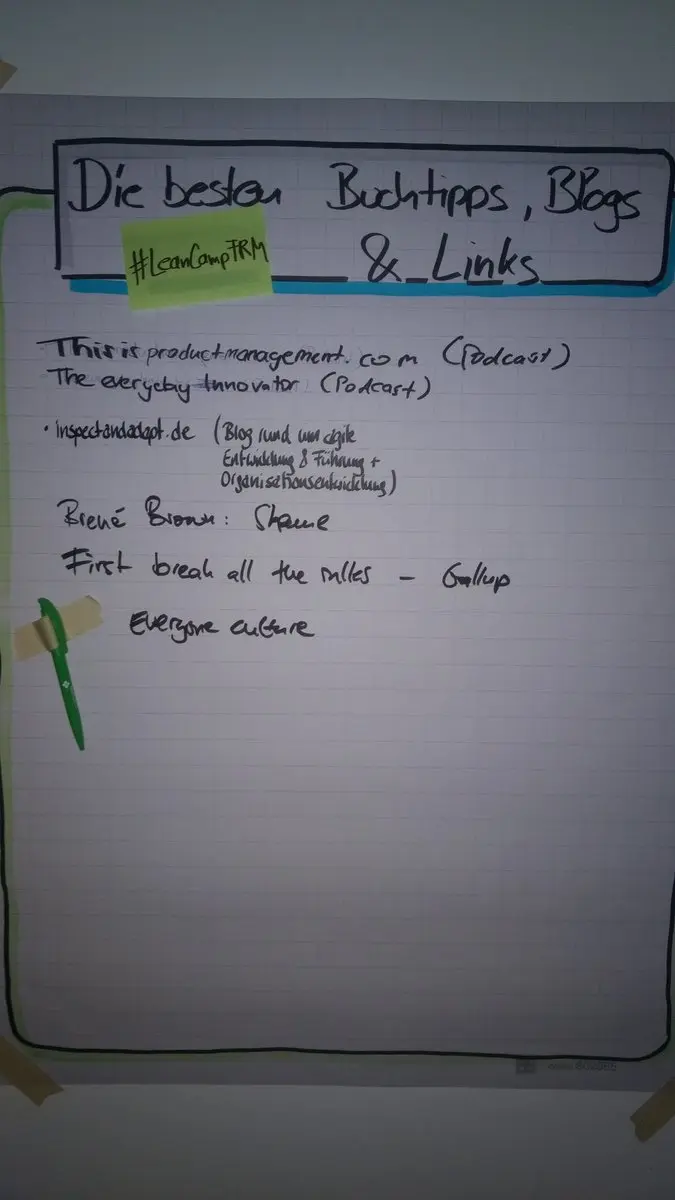 Die besten Buchtipps, Blogs
& Links
#LeanCampFRM
Thisisproductmanagement.com (Podcast)
The everyday Innovator (Podcast)
• inspectandadapt.de (Blog rund um agile
Entwicklung & Führung +
Organisationsentwicklung)
Brené Brown: Shame
First break all the rulles – Gallup
Everyone culture